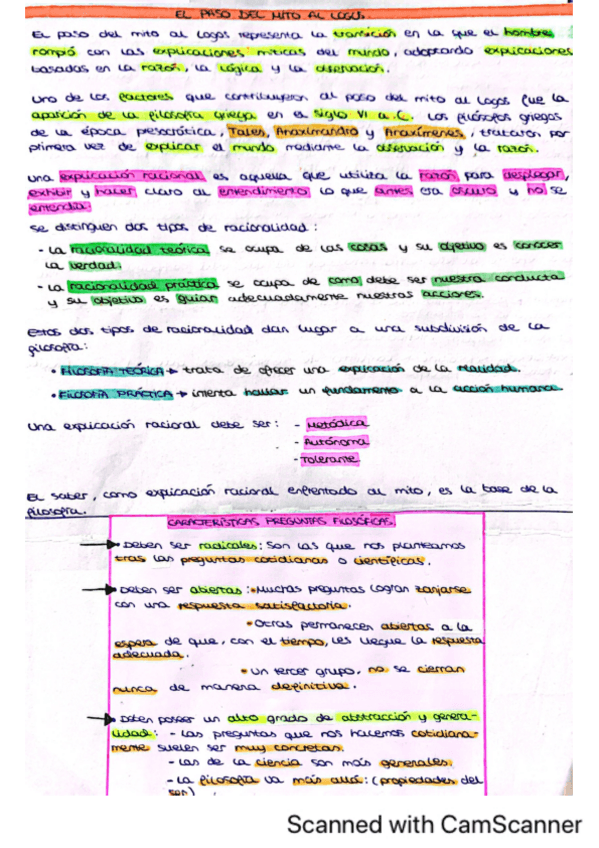 EL PASO DEL MITO AL LOGOS.
El paso del mito al logos representa la transición en la que el hombre
rompió con las explicaciones míticas del mundo, adoptando explicaciones
basadas en la razón, la lógica y la observación.
Uno de los factores que contribuyeron al paso del mito al logos fue la
aparición de la filosofía griega en el siglo VI a.C. Los filósofos griegos
de la época presocrática, Tales, Anaximandro y Anaxímenes, trataron por
primera vez de explicar el mundo mediante la observación y la razón.
Una explicación racional es aquella que utiliza la razón para desplegar,
exhibir y hacer claro al entendimiento lo que antes era oscuro y no se
entendía
Se distinguen dos tipos de racionalidad:
- La racionalidad teórica se ocupa de las cosas y su objetivo es conocer
la verdad.
- La racionalidad práctica se ocupa de como debe ser nuestra conducta
y su objetivo es guiar adecuadamente nuestras acciones.
Estos dos tipos de racionalidad dan lugar a una subdivisión de la
filosofía:
• FILOSOFÍA TEÓRICA → trata de ofrecer una explicación de la realidad.
• FILOSOFÍA PRÁCTICA → intenta hallar un fundamento a la acción humana
Una explicación racional debe ser: - Metódica
- Autónoma
- Tolerante
El saber, como explicación racional enfrentado al mito, es la base de la
filosofía.
CARACTERÍSTICAS PREGUNTAS FILOSÓFICAS.
→ Deben ser radicales: Son las que nos planteamos
tras las preguntas cotidianas o científicas.
→ Deben ser abiertas: • Muchas preguntas logran zanjarse
con una respuesta satisfactoria.
• Otras permanecen abiertas a la
espera de que, con el tiempo, les llegue la respuesta
adecuada.
• Un tercer grupo, no se cierran
nunca de manera definitiva.
→ Deben poseer un alto grado de abstracción y genera-
lidad: - Las preguntas que nos hacemos cotidiana-
mente suelen ser muy concretas.
- Las de la ciencia son más generales.
- La filosofía va más allá: (propiedades del
ser)
Scanned with CamScanner